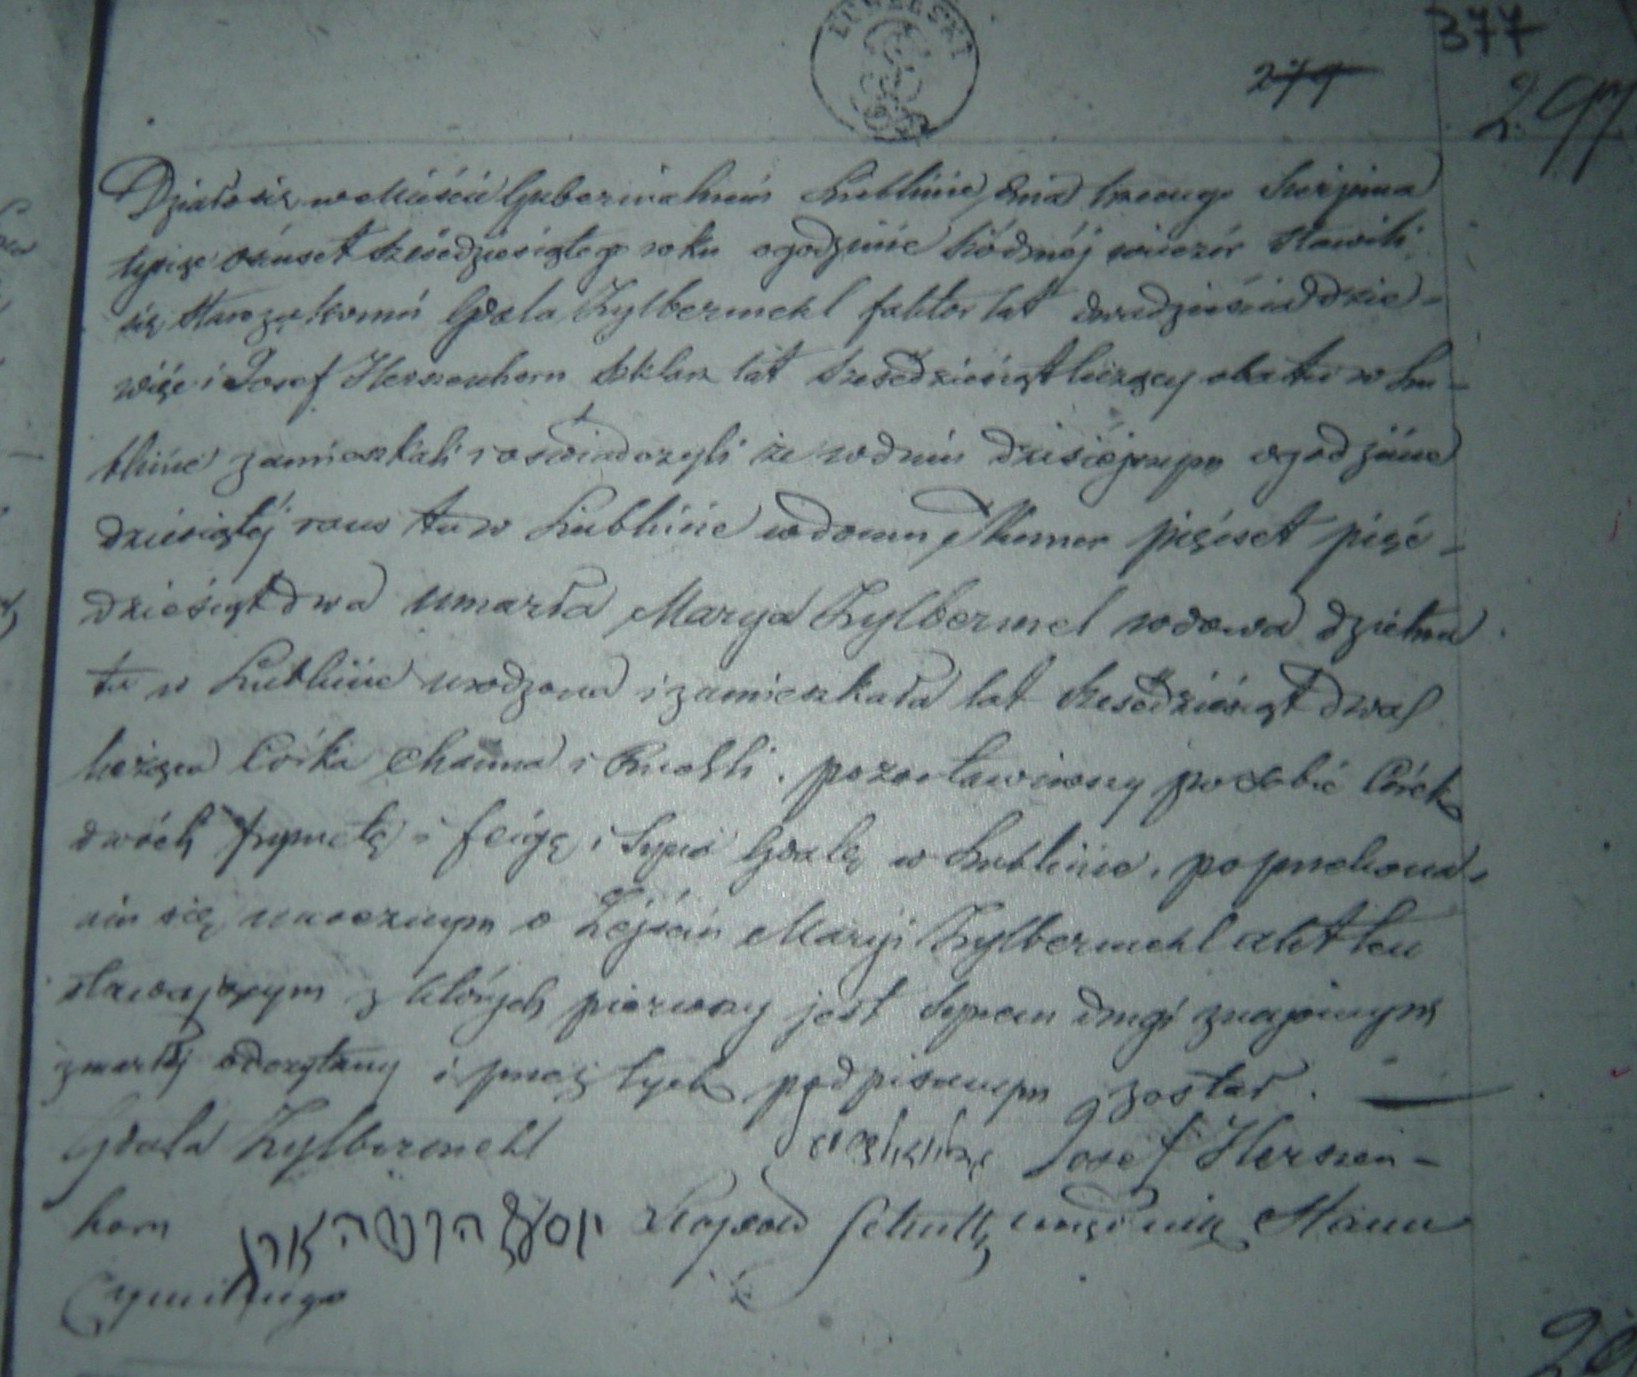 LUBELSKI
377
274
297
Działo się w Mieście Gubernialnem Lublinie, dnia trzeciego Sierpnia
tysiąc ośmset sześćdziesiątego roku o godzinie siódméj wieczór Stawili
się Starozakonni Gdala Zylbermehl faktor lat dwadzieścia dzie-
więć i Josef Herszenhorn szklarz lat sześćdziesiąt liczący oba tu w Lu-
blinie zamieszkali i oświadczyli że w dniu dzisiéjszym o godzinie
dziesiątéj rano tu w Lublinie w domu Numer pięćset pięć-
dziesiąt dwa umarła Marya Zylbermel wdowa dzietna
tu w Lublinie urodzona i zamieszkała lat sześćdziesiąt dwa
licząca Córka Chaima i pozostawiwszy po sobie Córek
dwóch Frymetę i Feigę i Syna Gdalę w Lublinie. po przekona-
niu się naocznym o Zejściu Maryi Zylbermehl akt ten
stawającym z których pierwszy jest Synem drugi znajomym
zmarłéj odczytany i przez tych podpisanym został.
Gdala Zylbermehl Josef Herszen-
horn יוסף הרשהארן Leopold Schultz urzędnik Stanu
Cywilnego
29